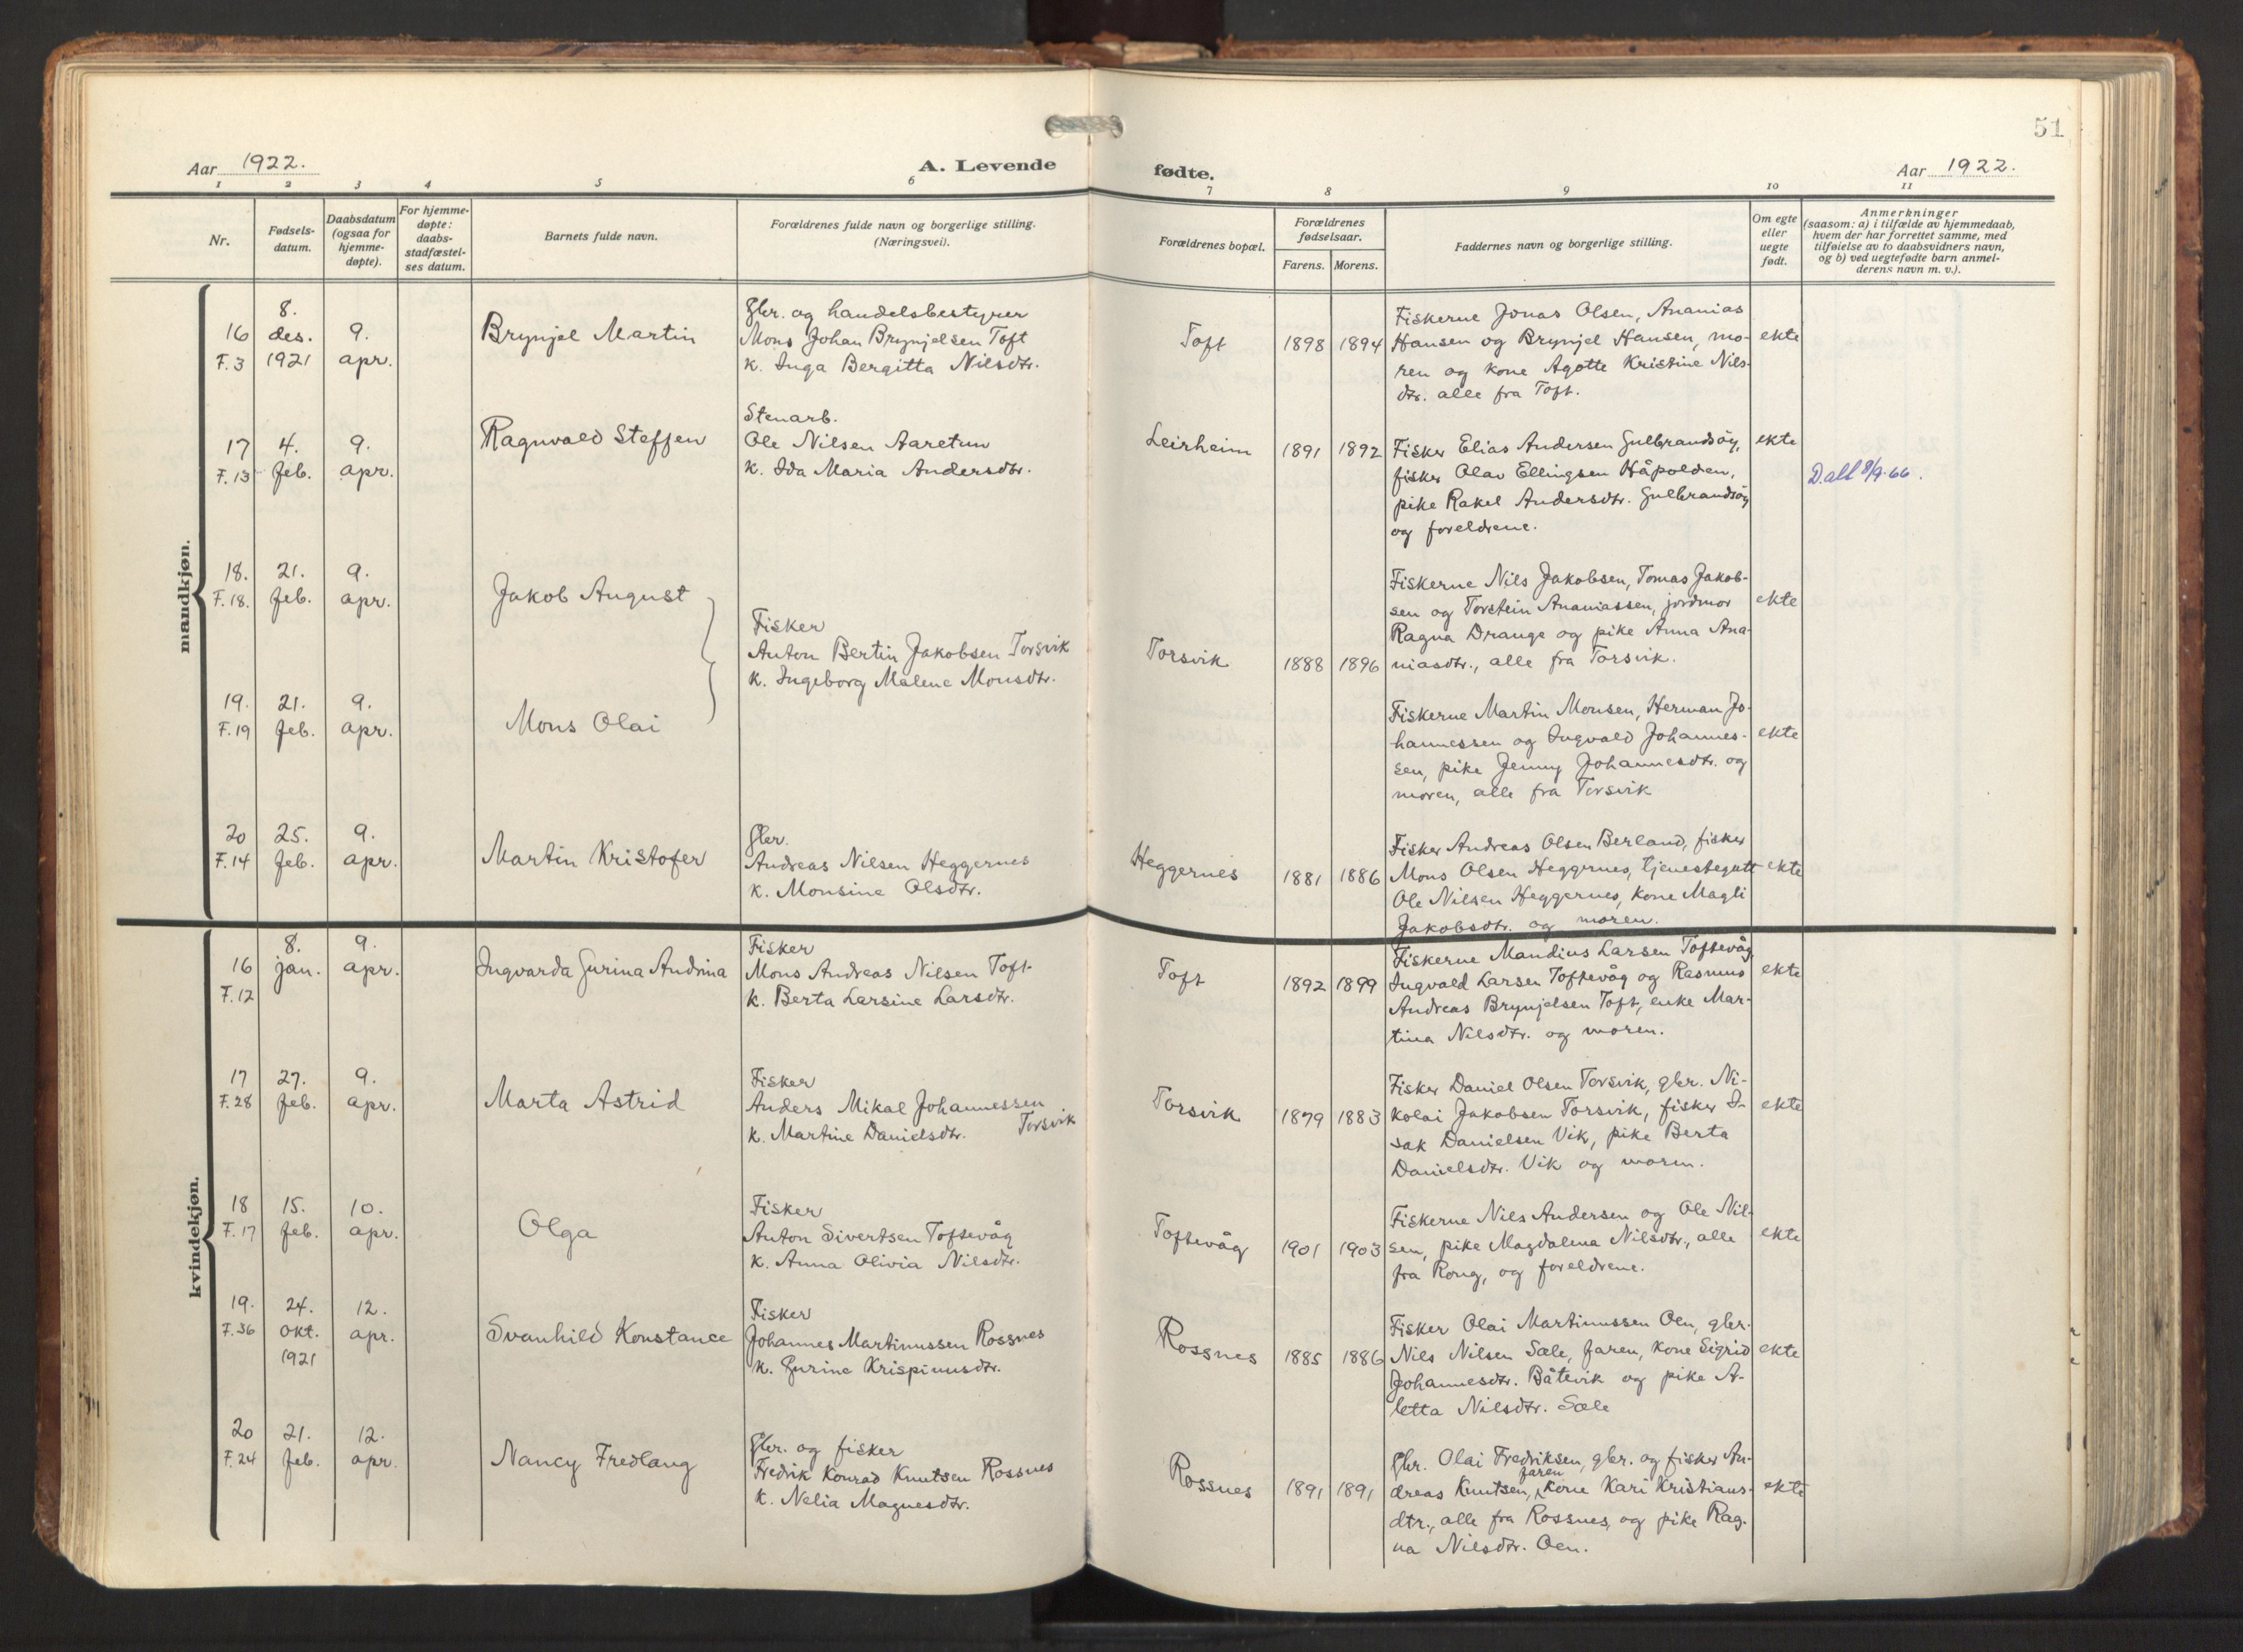 51
Aar 1922.
A. Levende
fødte.
Aar 1922.
1 2 3 4 5 6 7 8 9 10 11
Nr.
Fødsels-
datum.
Daabsdatum
(ogsaa for
hjemme-
døpte).
For hjemme-
døpte:
daabs-
stadfæstel-
ses datum.
Barnets fulde navn.
Forældrenes fulde navn og borgerlige stilling.
(Næringsvei).
Forældrenes bopæl.
Forældrenes
fødselsaar.
Farens. Morens.
Faddernes navn og borgerlige stilling.
Om egte
eller
uegte
født.
Anmerkninger
(saasom: a) i tilfælde av hjemmedaab,
hvem der har forrettet samme, med
tilføielse av to daabsvidners navn,
og b) ved uegtefødte barn anmel-
derens navn m. v.).
mandkjøn.
16
F.3
8.
des.
1921
9.
apr.
Brynjel Martin
Gbr. og handelsbestyrer
Mons Johan Brynjelsen Toft
k. Inga Bergitta Nilsdtr.
Toft
1898
1894
Fiskerne Jonas Olsen, Ananias
Hansen og Brynjel Hansen, mo-
ren og kone Agotte Kristine Nils-
dtr. alle fra Toft.
ekte
17
F.13
4.
feb.
9.
apr.
Ragnvald Steffen
Stenarb.
Ole Nilsen Aaretun
k. Ida Maria Andersdtr.
Leirheim
1891
1892
Fisker Elias Andersen Gulbrandsöy,
fisker Olav Ellingsen Håpolden,
pike Rakel Andersdtr. Gulbrandsöy
og foreldrene.
ekte
D.att 8/9-66.
18.
F.18.
21.
feb.
9.
apr.
Jakob August
Fisker
Anton Bertin Jakobsen Torsvik
k. Ingeborg Malene Monsdtr.
Torsvik
1888
1896
Fiskerne Nils Jakobsen, Tomas Jakob-
sen og Torstein Ananiassen, jordmor
Ragna Drange og pike Anna Ana-
niasdtr., alle fra Torsvik.
ekte
19.
F.19
21.
feb.
9.
apr.
Mons Olai
Fiskerne Martin Monsen, Herman Jo-
hannessen og Ingvald Johannes-
sen, pike Jenny Johannesdtr. og
moren, alle fra Torsvik
ekte
20
F.14
25.
feb.
9.
apr.
Martin Kristofer
Gbr.
Andreas Nilsen Heggernes
k. Monsine Olsdtr.
Heggernes
1881
1886
Fisker Andreas Olsen Berland, fisker
Mons Olsen Heggernes, tjenestegutt
Ole Nilsen Heggernes, kone Magli
Jakobsdtr. og moren.
ekte
kvindekjøn.
16
F.12
8.
jan.
9.
apr.
Ingvarda Gurina Andrina
Fisker
Mons Andreas Nilsen Toft
k. Berta Larsine Larsdtr.
Toft
1892
1899
Fiskerne Mandius Larsen Toftevåg,
Ingvald Larsen Toftevåg og Rasmus
Andreas Brynjelsen Toft, enke Mar-
tina Nilsdtr. og moren.
ekte
17
F.28
27.
feb.
9.
apr.
Marta Astrid
Fisker
Anders Mikal Johannessen
Torsvik
k. Martine Danielsdtr.
Torsvik
1879
1883
Fisker Daniel Olsen Torsvik, gbr. Ni-
kolai Jakobsen Torsvik, fisker I-
sak Danielsen Vik, pike Berta
Danielsdtr. Vik og moren.
ekte
18
F.17
15.
feb.
10.
apr.
Olga
Fisker
Anton Sivertsen Toftevåg
k. Anna Olivia Nilsdtr.
Toftevåg
1901
1903
Fiskerne Nils Andersen og Ole Nil-
sen, pike Magdalena Nilsdtr., alle
fra Rong, og foreldrene.
ekte
19.
F.36
24.
okt.
1921
12.
apr.
Svanhild Konstance
Fisker
Johannes Martinussen Rossnes
k. Gurine Krispinusdtr.
Rossnes
1885
1886
Fisker Olai Martinussen Oen, gbr.
Nils Nilsen Sæle, faren, kone Sigrid
Johannesdtr. Båtevik og pike A-
letta Nilsdtr. Sæle
ekte
20
F.24
21.
feb.
12.
apr.
Nancy Fredlaug
Gbr. og fisker
Fredrik Konrad Knutsen Rossnes
k. Nelia Magnesdtr.
Rossnes
1891
1891
Gbr. Olai Fredriksen, gbr. og fisker An-
dreas Knutsen, faren, kone Kari Kristians-
dtr., alle fra Rossnes, og pike Rag-
na Nilsdtr. Oen.
ekte